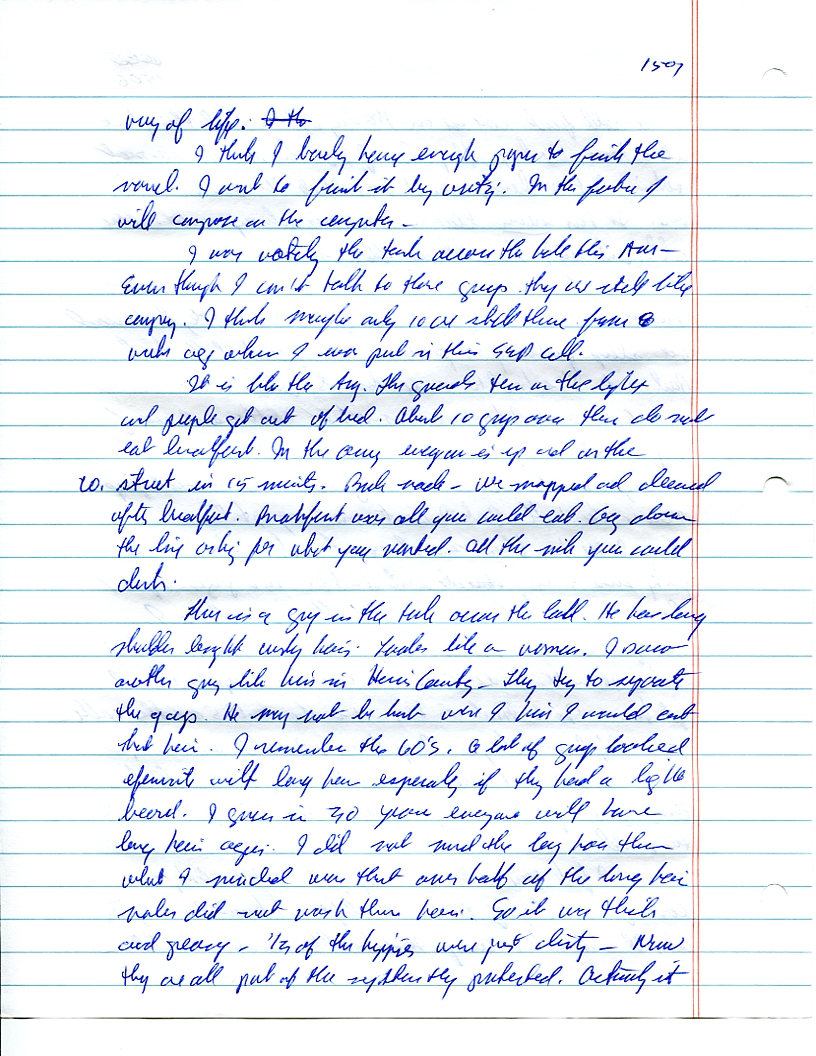 1507
way of life. I th
I think I barely have enough paper to finish the
novel. I want to finish it by writing. In the future I
will compose on the computer -
I was watching the tank across the hall this Am -
Even though I can't talk to those guys they are still like
company. I think maybe only 10 are still there from 6
weeks ago when I was put in this cell.
It is like the Army. The guards turn on the lights
and people get out of bed. About 10 guys over there do not
eat breakfast. In the army everyone is up and on the
20. street in 15 minutes. Back - we mopped and cleaned
after breakfast. Breakfast was all you could eat. Go down
the line asking for what you wanted. All the milk you could
drink.
There is a guy in the tank across the hall. He has long
shoulder lenght curly hair. Looks like a women. I saw
another guy like him in Harris County - They try to separate
the gays. He may not be but were I him I would cut
that hair. I remember the 60's. A lot of guys looked
with long hair especially if they had a light
beard. I guess in 30 years everyone will have
long hair again. I did not mind the long hair then
what I minded was that over half of the long hair
males did not wash there hair. So it was thick
and greasy - 1/2 of the hippies were just dirty - Now
they are all part of the system they protested. Actually it